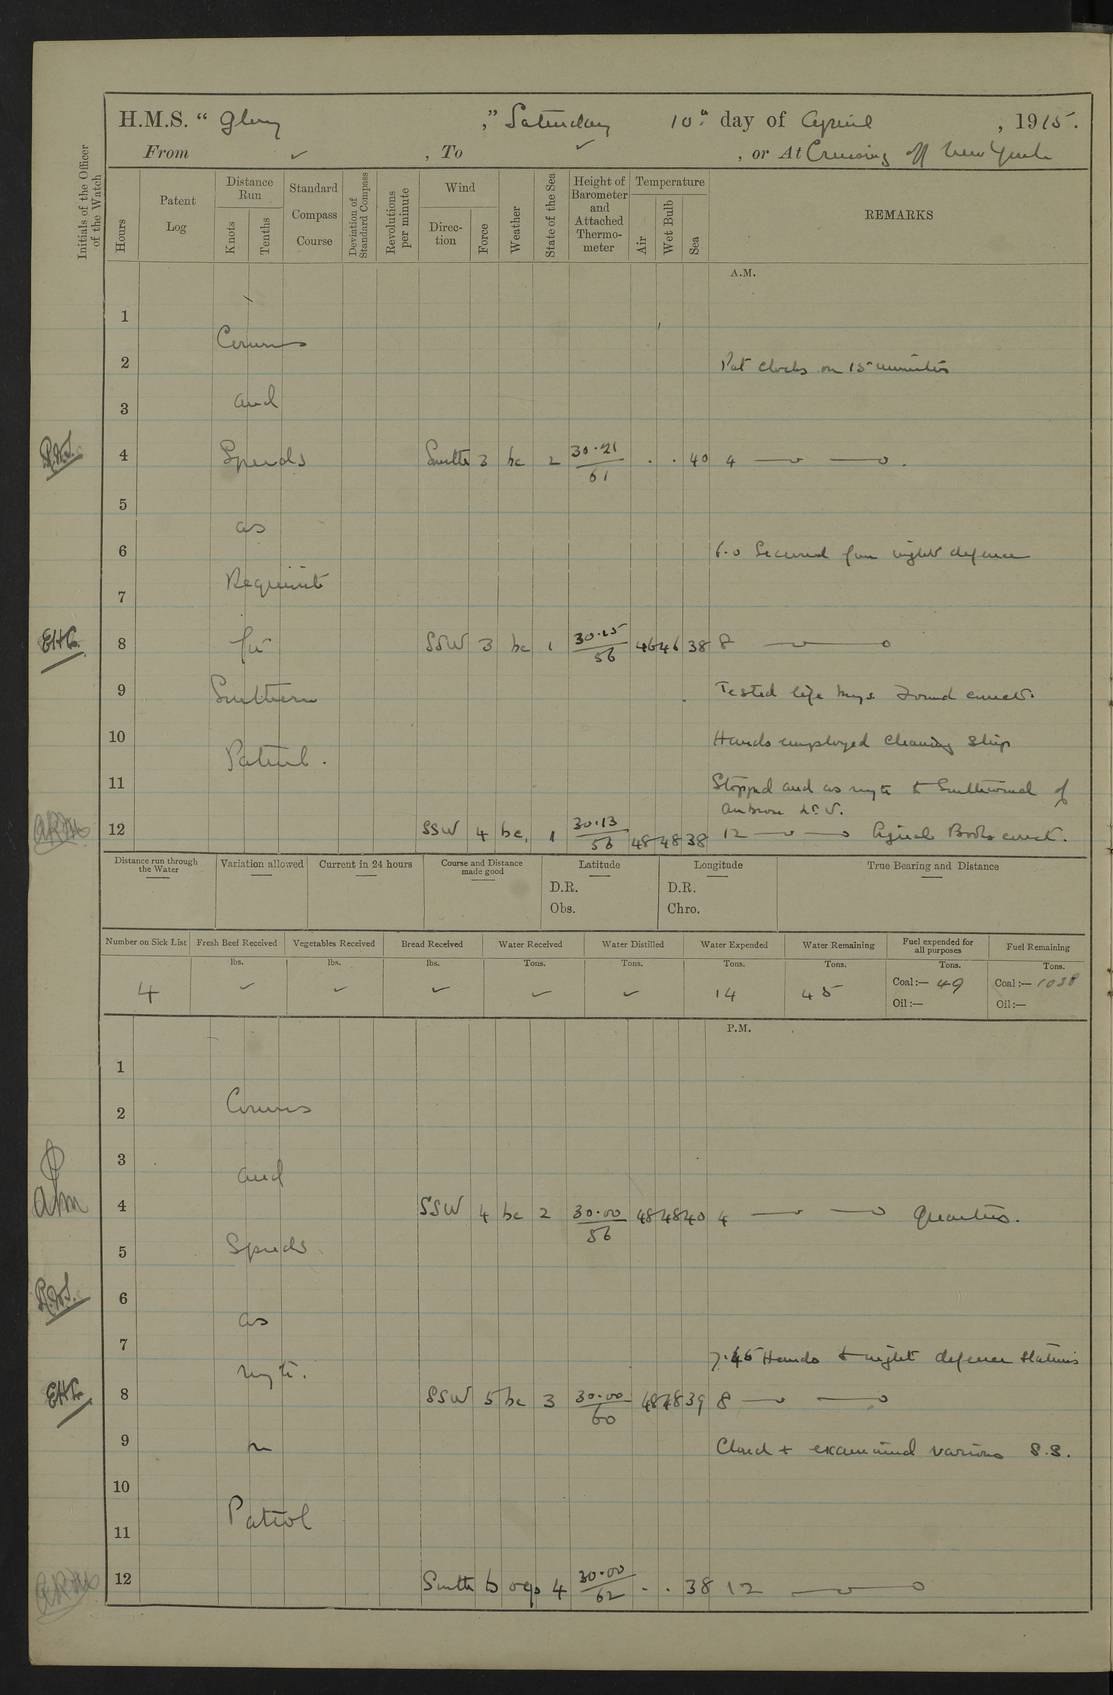 H.M.S. “ Glory ,” Saturday 10th day of April , 1915.
From ✓ , To ✓ , or At Cruising off New York
Initials of the Officer of the Watch
Hours
Patent Log
Distance Run
Knots
Tenths
Standard Compass Course
Deviation of Standard Compass
Revolutions per minute
Wind
Direction
Force
Weather
State of the Sea
Height of Barometer and Attached Thermometer
Temperature
Air
Wet Bulb
Sea
REMARKS
A.M.
1
Courses
2 Put clocks on 15 minutes
3 and
4 Speeds South 3 bc 2 30.21 61 40 4
5
as
6 6.0 Secured from night defence
7 Requisite
8 for SSW 3 bc 1 30.15 56 46 46 38 8
9 Southern Tested life buoys Found correct.
10 Hands employed cleaning ship
Patrol.
11 Stopped and as reqte to Southward of
Ambrose L.V.
12 SSW 4 bc, 1 30.13 56 48 48 38 12 Books correct.
Distance run through the Water
Variation allowed
Current in 24 hours
Course and Distance made good
Latitude
D.R.
Obs.
Longitude
D.R.
Chro.
True Bearing and Distance
Number on Sick List
Fresh Beef Received
Vegetables Received
Bread Received
Water Received
Water Distilled
Water Expended
Water Remaining
Fuel expended for all purposes
Fuel Remaining
lbs. lbs. lbs. Tons. Tons. Tons. Tons. Tons. Tons.
4 ✓ ✓ ✓ ✓ ✓ 14 45 Coal:— 49 Coal:— 1038
Oil:— Oil:—
P.M.
1
2 Courses
3
and
4 SSW 4 bc 2 30.00 56 48 48 40 4 Quarters.
5 Speeds
6
as
7 7.45 Hands to night defence stations
reqte.
8 SSW 5 bc 3 30.00 60 48 48 39 8
9 Chased + examined various S.S.
10
Patrol
11
12 South 6 4 30.00 62 38 12